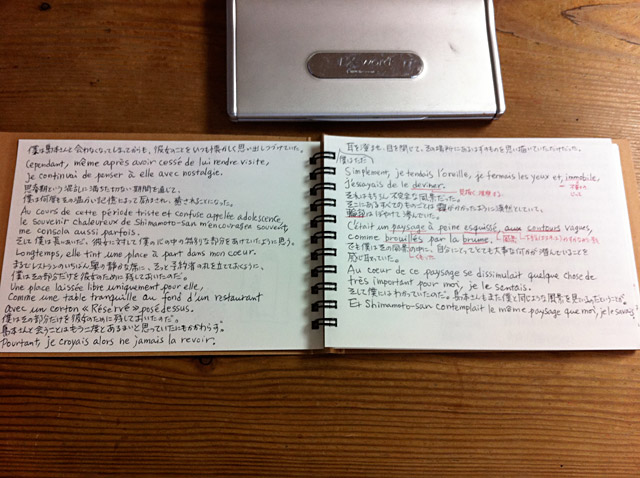 EX-word
僕は島本さんと会わなくなってしまってからも、彼女のことをいつも懐かしく思い出しつづけていた。
Cependant, même après avoir cessé de lui rendre visite,
je continuai de penser à elle avec nostalgie.
思春期という混乱に満ちたせつない期間を通じて、
僕は何度もその温かい記憶によって励まされ、癒されることになった。
Au cours de cette période triste et confuse appelée adolescence,
le souvenir chaleureux de Shimamoto-san m'encouragea souvent,
me consola aussi parfois.
そして僕は長いあいだ、彼女に対して僕の心の中の特別な部分をあけていたように思う。
Longtemps, elle tint une place à part dans mon coeur.
まるでレストランのいちばん奥の静かな席に、そっと予約済の札を立てておくように、
僕はその部分だけを彼女のために残しておいたのだ。
Une place laissée libre uniquement pour elle,
comme une table tranquille au fond d'un restaurant
avec un carton « Réservé » posé dessus.
僕はその部分だけを彼女のために残しておいたのだ。
島本さんと会うことはもう二度とあるまいと思っていたにもかかわらず。
Pourtant, je croyais alors ne jamais la revoir.
耳を澄ませ、目を閉じて、その場所にあるはずのものを思い描いていただけだった。
僕はただ
Simplement, je tendais l'oreille, je fermais les yeux et, immobile,
j'essayais de le deviner.
それはもちろん不完全な風景だった。
そこにあるすべてのものごとは霧がかかったように漠然としていて、
輪郭はぼやけて滲んでいた。
C'était un paysage à peine esquissé, aux contours vagues,
comme brouillés par la brume,
でも僕はその風景の中に、自分にとってとても大事な何かが潜んでいることを
感じ取っていた。
Au coeur de ce paysage se dissimulait quelque chose de
très important pour moi, je le sentais.
そして僕にはわかっていたのだ。島本さんもまた僕と同じような風景を見ているということを。
Et Shimamoto-san contemplait le même paysage que moi, je le savais.